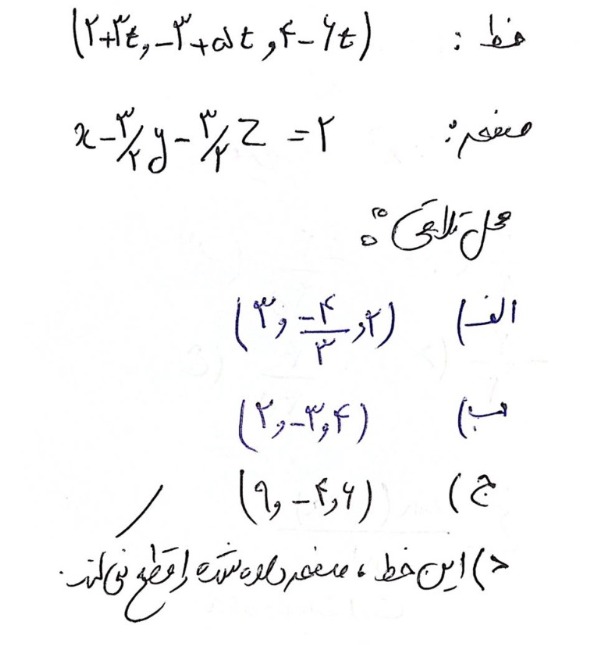 خط : (۲+۳t, -۳+۵t, ۴-۶t)
صفحه: x - ۳/۲ y - ۳/۲ z = ۲
محل تلاقی:
الف) (۳, -۴/۳, ۲)
ب) (۲, -۳, ۴)
ج) (۹, -۴, ۶)
د) این خط، صفحه داده شده را قطع نمی‌کند.